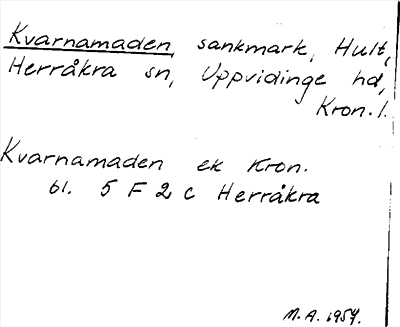 Kvarnamaden, sankmark, Hult,
Herråkra sn, Uppvidinge hd,
Kron. l.
Kvarnamaden ek Kron.
bl. 5 F 2 c Herråkra
M.A. 1954.